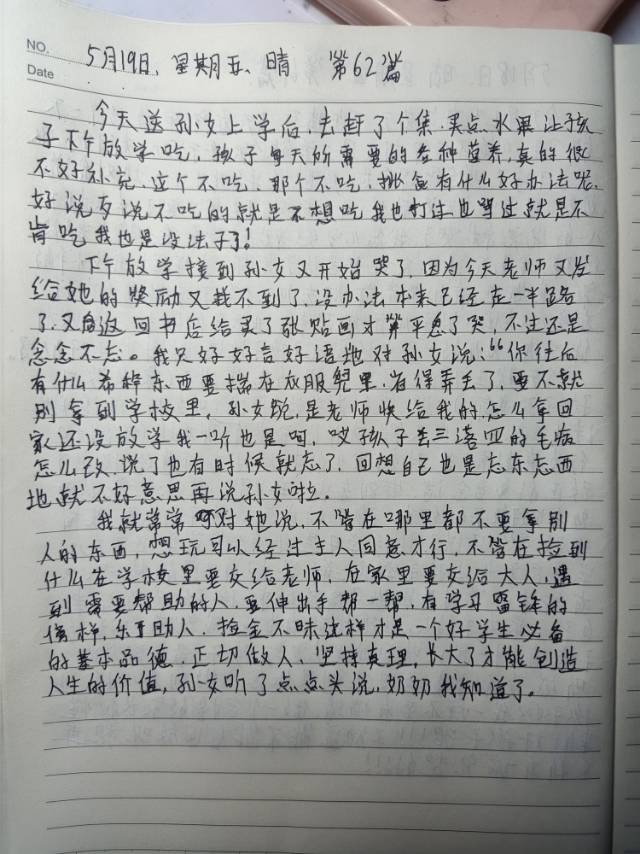 NO.
Date
5月19日、星期五、晴 第62篇
今天送孙女上学后，去赶了个集，买点水果让孩
子下午放学吃，孩子每天所需要的各种营养，真的很
不好补充、这个不吃、那个不吃，挑食有什么好办法呢，
好说歹说不吃的就是不想吃我也打过也骂过就是不
肯吃我也是没法子了！
下午放学接到孙女又开始哭了，因为今天老师又发
给她的奖励又找不到了，没办法本来已经走一半路
了，又启返回书店给买了张贴画才算平息了哭，不过还是
念念不忘。我只好好言好语地对孙女说：“你往后
有什么希样东西要揣在衣服兜里，省得弄丢了，要不就
别拿到学校里，孙女说，是老师快给我的，怎么拿回
家还没放学我一听也是啊，哎孩子丢三落四的毛病
怎么改，说了也有时候就忘了，回想自己也是忘东忘西
地就不好意思再说孙女啦。
我就常常对她说，不管在哪里都不要拿别
人的东西，想玩可以经过主人同意才行，不管在捡到
什么在学校里要交给老师，在家里要交给大人，遇
到需要帮助的人，要伸出手帮一帮，有学习雷锋的
傍样，乐于助人，捡金不昧这样才是一个好学生必备
的基本品德，正切做人，坚持真理，长大了才能创造
人生的价值，孙女听了点点头说，奶奶我知道了。